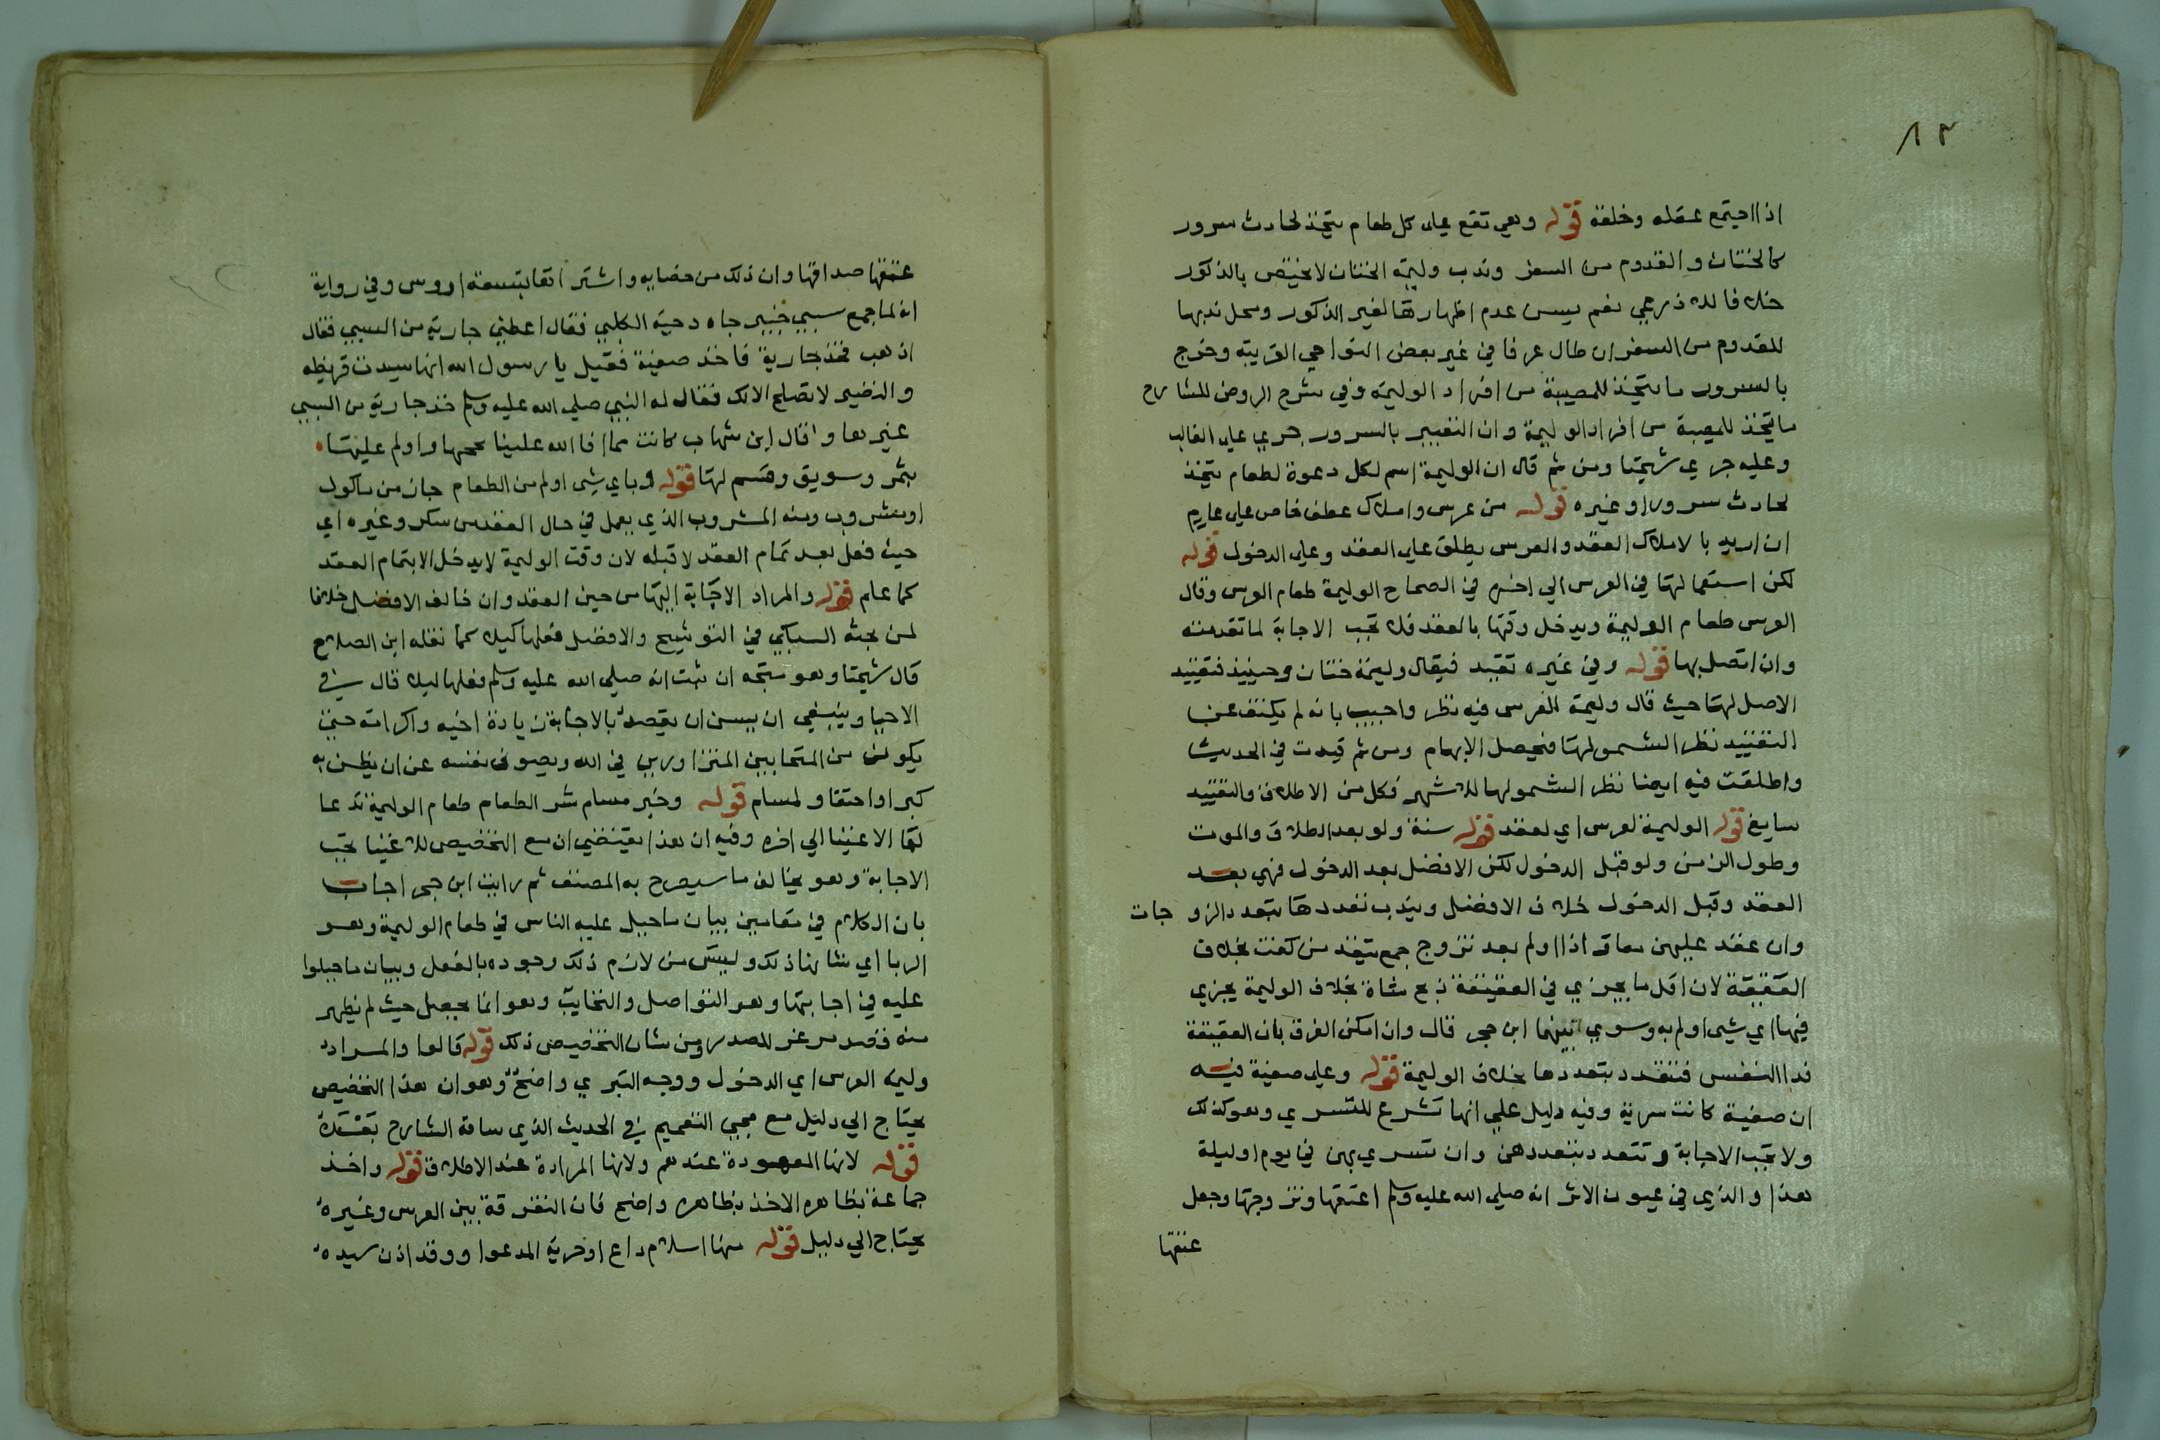 ٨٣
اذا اجتمع عقله وخلقه قوله وهي تقع على كل طعام يتخذ لحادث سرور
كالختان والقدوم من السفر وندب وليمة الختان لا يختص بالذكور
خلافا للاذرعي نعم يسن عدم اظهارها لغير الذكور ومحل ندبها
للقدوم من السفر ان طال عرفا في غير بعض النواحي القريبة وخرج
بالسرور ما يتخذ للمصيبة من افراد الوليمة وفي شرح الروض للشارح
ما يتخذ للمصيبة من افراد الوليمة وان التعبير بالسرور جري على الغالب
وعليه جري شيخنا ومن ثم قال ان الوليمة اسم لكل دعوة لطعام يتخذ
لحادث سرور او غيره قوله من عرس واملاك عطف خاص على عام
ان اريد بالاملاك العقد والعرس يطلق على العقد وعلى الدخول قوله
لكن استعمالها في العرس الي اخره في الصحاح الوليمة طعام العرس وقال
العرس طعام الوليمة ويدخل وقتها بالعقد فلا تجب الاجابة لما تقدمته
وان اتصل بها قوله وفي غيره تقيد فيقال وليمة ختان وحينيذ فتقييد
الاصل لها حيث قال وليمة العرس فيه نظر واجيب بانه لم يكتف عن
التقييد نظر الشمولها فيحصل الابهام ومن ثم قيدت في الحديث
واطلقت فيه ايضا نظر الشمولها للاشهر فكل من الاطلاق والتقييد
سايغ قوله الوليمة لعرس اي لعقد قوله سنة ولو بعد الطلاق والموت
وطول الزمن ولو قبل الدخول لكن الافضل بعد الدخول فهي بعد
العقد وقبل الدخول خلاف الافضل ويندب تعددها بتعدد الزوجات
وان عقد عليهن معا اذا اولم بعد تزوج جمع بقصد من كفت بخلاف
العقيقة لان اقل ما يجزي في العقيقة ذبح شاة بخلاف الوليمة يجزي
فيها اي شي اولم به وسوي بينهما ابن حجر قال وان امكن الفرق بان العقيقة
فدا النفس فتتعدد بتعددها بخلاف الوليمة قوله وعلى صفية فيه
ان صفية كانت سرية وفيه دليل علي انها تشرع للتسري وهو كذلك
ولا تجب الاجابة وتتعدد بتعددهن وان تسري بهن في يوم او ليلة
هذا والذي في عيون الاثر انه صلى الله عليه وسلم اعتقها وتزوجها وجعل
عتقها
عتقها صداقها وان ذلك من خصايصه واشتراها بسبعة اروس وفي رواية
انه لما جمع سبي خيبر جاه دحية الكلبي فقال اعطني جارية من السبي فقال
اذهب فخذ جارية فاخذ صفية فقيل يا رسول الله انها سيدت قريظه
والنضير لا تصلح الا لك فقال له النبي صلى الله عليه وسلم خذ جارية من السبي
غيرها وقال ابن شهاب كانت مما افا الله علينا فحجبها واولم عليها
بتمر وسويق وقسم لها قوله وباي شي اولم من الطعام جاز من ماكول
او مشروب ومنه المشروب الذي يعمل في حال العقد من سكر وغيره اي
حيث فعل بعد تمام العقد لا قبله لان وقت الوليمة لا يدخل الا بتمام العقد
كما علم قوله والمراد الاجابة اليها من حين العقد وان خالف الافضل خلافا
لمن بحثه السبكي في التوشيح والافضل فعلها ليلا كما نقله ابن الصلاح
قال شيخنا وهو متجه ان ثبت انه صلى الله عليه وسلم فعلها ليلا قال في
الاحيا وينبغي ان يسن ان يقصد بالاجابة زيادة اخيه واكرامه حتي
يكون من المتحابين المتزاورين في الله ويصون نفسه عن ان يظن به
كبر او احتقار لمسلم قوله وخبر مسلم شر الطعام طعام الوليمة تدعا
لها الاغنيا الي اخره وفيه ان هذا يقتضي ان مع التخصيص للاغنيا تجب
الاجابة وهو يخالف ما سيصرح به المصنف ثم رايت ابن حجر اجاب
بان الكلام في مقامين بيان ما جبل عليه الناس في طعام الوليمة وهو
الريا اي شانها ذلك وليس من لازم ذلك وجوده بالفعل وبيان ما جبلوا
عليه في اجابتها وهو التواصل والتحابب وهو انما يحصل حيث لم يظهر
منه قصد موغر للصدر ومن شان التخصيص ذلك قوله قالوا والمراد
وليمة العرس اي الدخول ووجه التبري واضح وهو ان هذا التخصيص
يحتاج الي دليل مع مجيي التعميم في الحديث الذي ساقه الشارح بعده
قوله لانها المعهودة عندهم ولانها المرادة عند الاطلاق قوله واخذ
جماعة بظاهره الاخذ بظاهره واضح فان التفرقة بين العرس وغيره
يحتاج الي دليل قوله منها اسلام داع او حرية المدعوا وقد اذن سيده